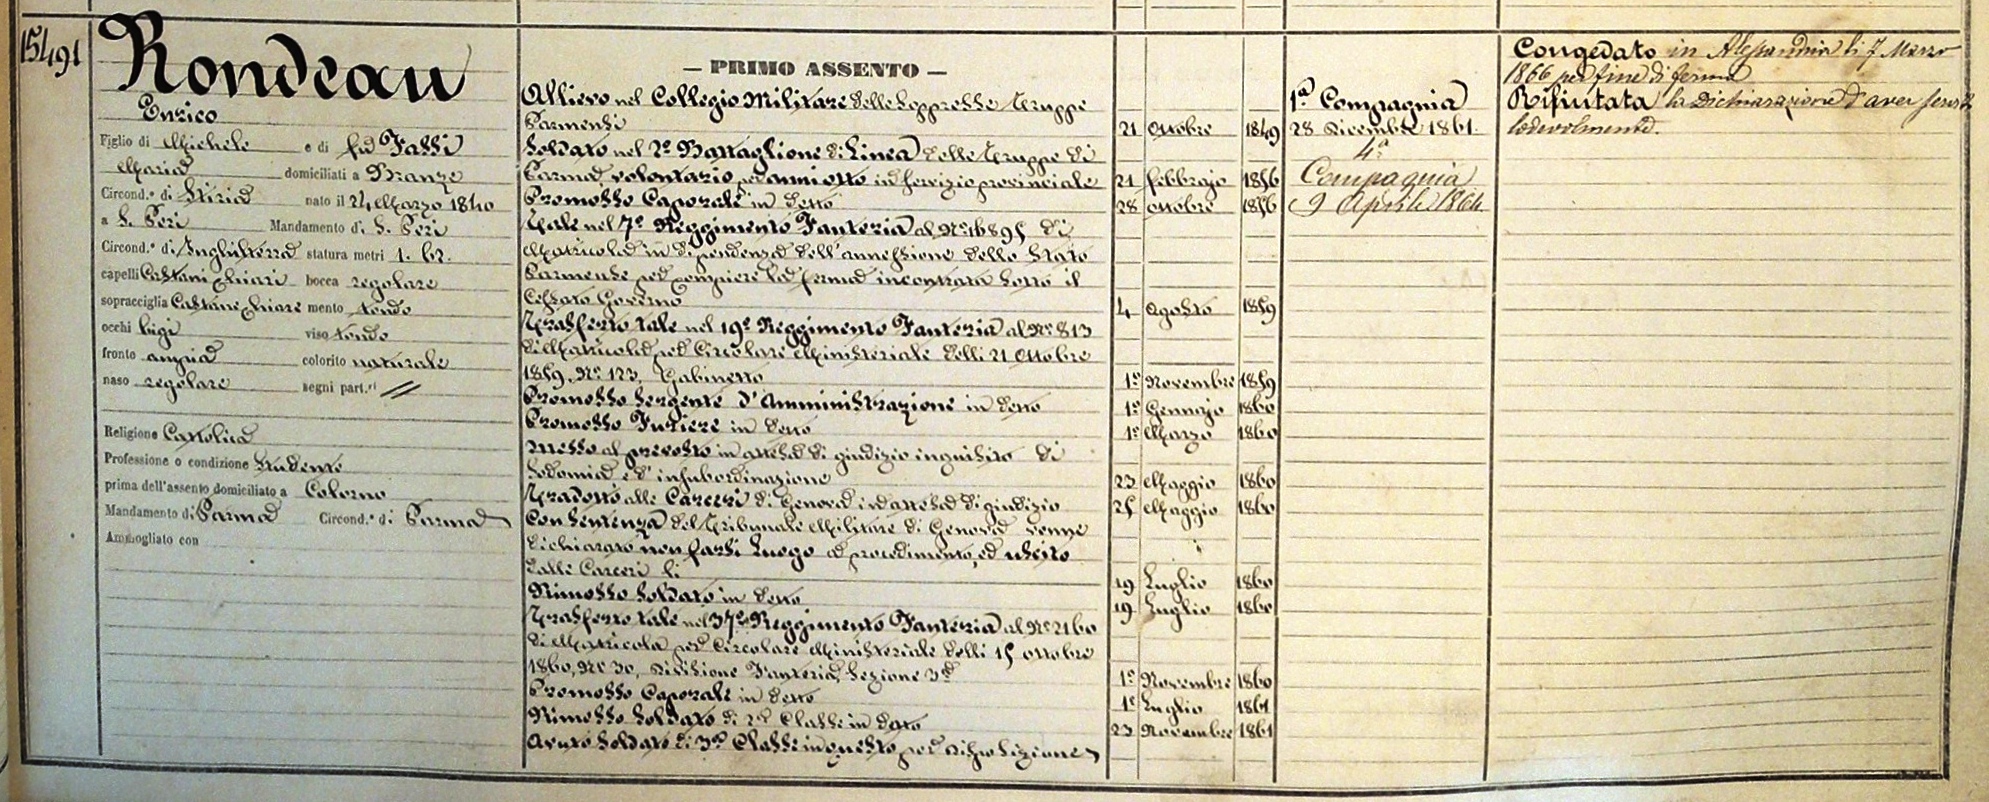 15491
Rondeau
Enrico
Figlio di Michele e di fu Fassi
Maria domiciliati a Granze
Circond.º di Stiria nato il 24 Marzo 1840
a S. Peri Mandamento di S. Peri
Circond.º di Inghilterra statura metri 1. 62.
capelli Castani chiari bocca regolare
sopracciglia Castane chiare mento tondo
occhi bigi viso tondo
fronte ampia colorito naturale
naso regolare segni part.ri //
Religione Cattolica
Professione o condizione Studente
prima dell'assento domiciliato a Colorno
Mandamento di Parma Circond.º di Parma
Ammogliato con
— PRIMO ASSENTO —
Allievo nel Collegio Militare delle soppresse Truppe
Parmensi 21 Ottobre 1849
Soldato nel 2º Battaglione di Linea delle Truppe di
Parma, volontario per anni otto in servizio provinciale 21 febbrajo 1856
Promosso Caporale in detto 28 ottobre 1856
Tale nel 7º Reggimento Fanteria al Nº 16895 di
Matricola in dipendenza dell'annessione dello Stato
Parmense per compiere la ferma incontrata sotto il
Cessato Governo 4 Agosto 1859
Trasferto tale nel 19º Reggimento Fanteria al Nº 813
di Matricola per Circolare Ministeriale delli 21 Ottobre
1859, Nº 123, Gabinetto 1º Novembre 1859
Promosso Sergente d'Amministrazione in detto 1º Gennajo 1860
Promosso Furiere in detto 1º Marzo 1860
Messo al prevosto in attesa di giudizio inquisito di
sodomia e d'insubordinazione 23 Maggio 1860
Tradotto alle Carceri di Genova in attesa di giudizio 25 Maggio 1860
Con Sentenza del Tribunale Militare di Genova venne
dichiarato non farsi luogo a procedimento, ed uscito
dalle Carceri li 19 Luglio 1860
Rimosso Soldato in detto 19 Luglio 1860
Trasferto tale nel 37º Reggimento Fanteria al Nº 2160
di Matricola per Circolare Ministeriale delli 15 ottobre
1860, Nº 30, Divisione Fanteria, Sezione 3ª 1º Novembre 1860
Promosso Caporale in detto 1º Luglio 1861
Rimosso Soldato di 2ª Classe in detto 23 Novembre 1861
Avuto Soldato di 3ª Classe in questo per disposizione
1ª Compagnia
28 Dicembre 1861.
4ª
Compagnia
9 Aprile 1864
Congedato in Alessandria li 7 Marzo
1866 per fine di ferma
Rifiutata la Dichiarazione d'aver servito
lodevolmente.